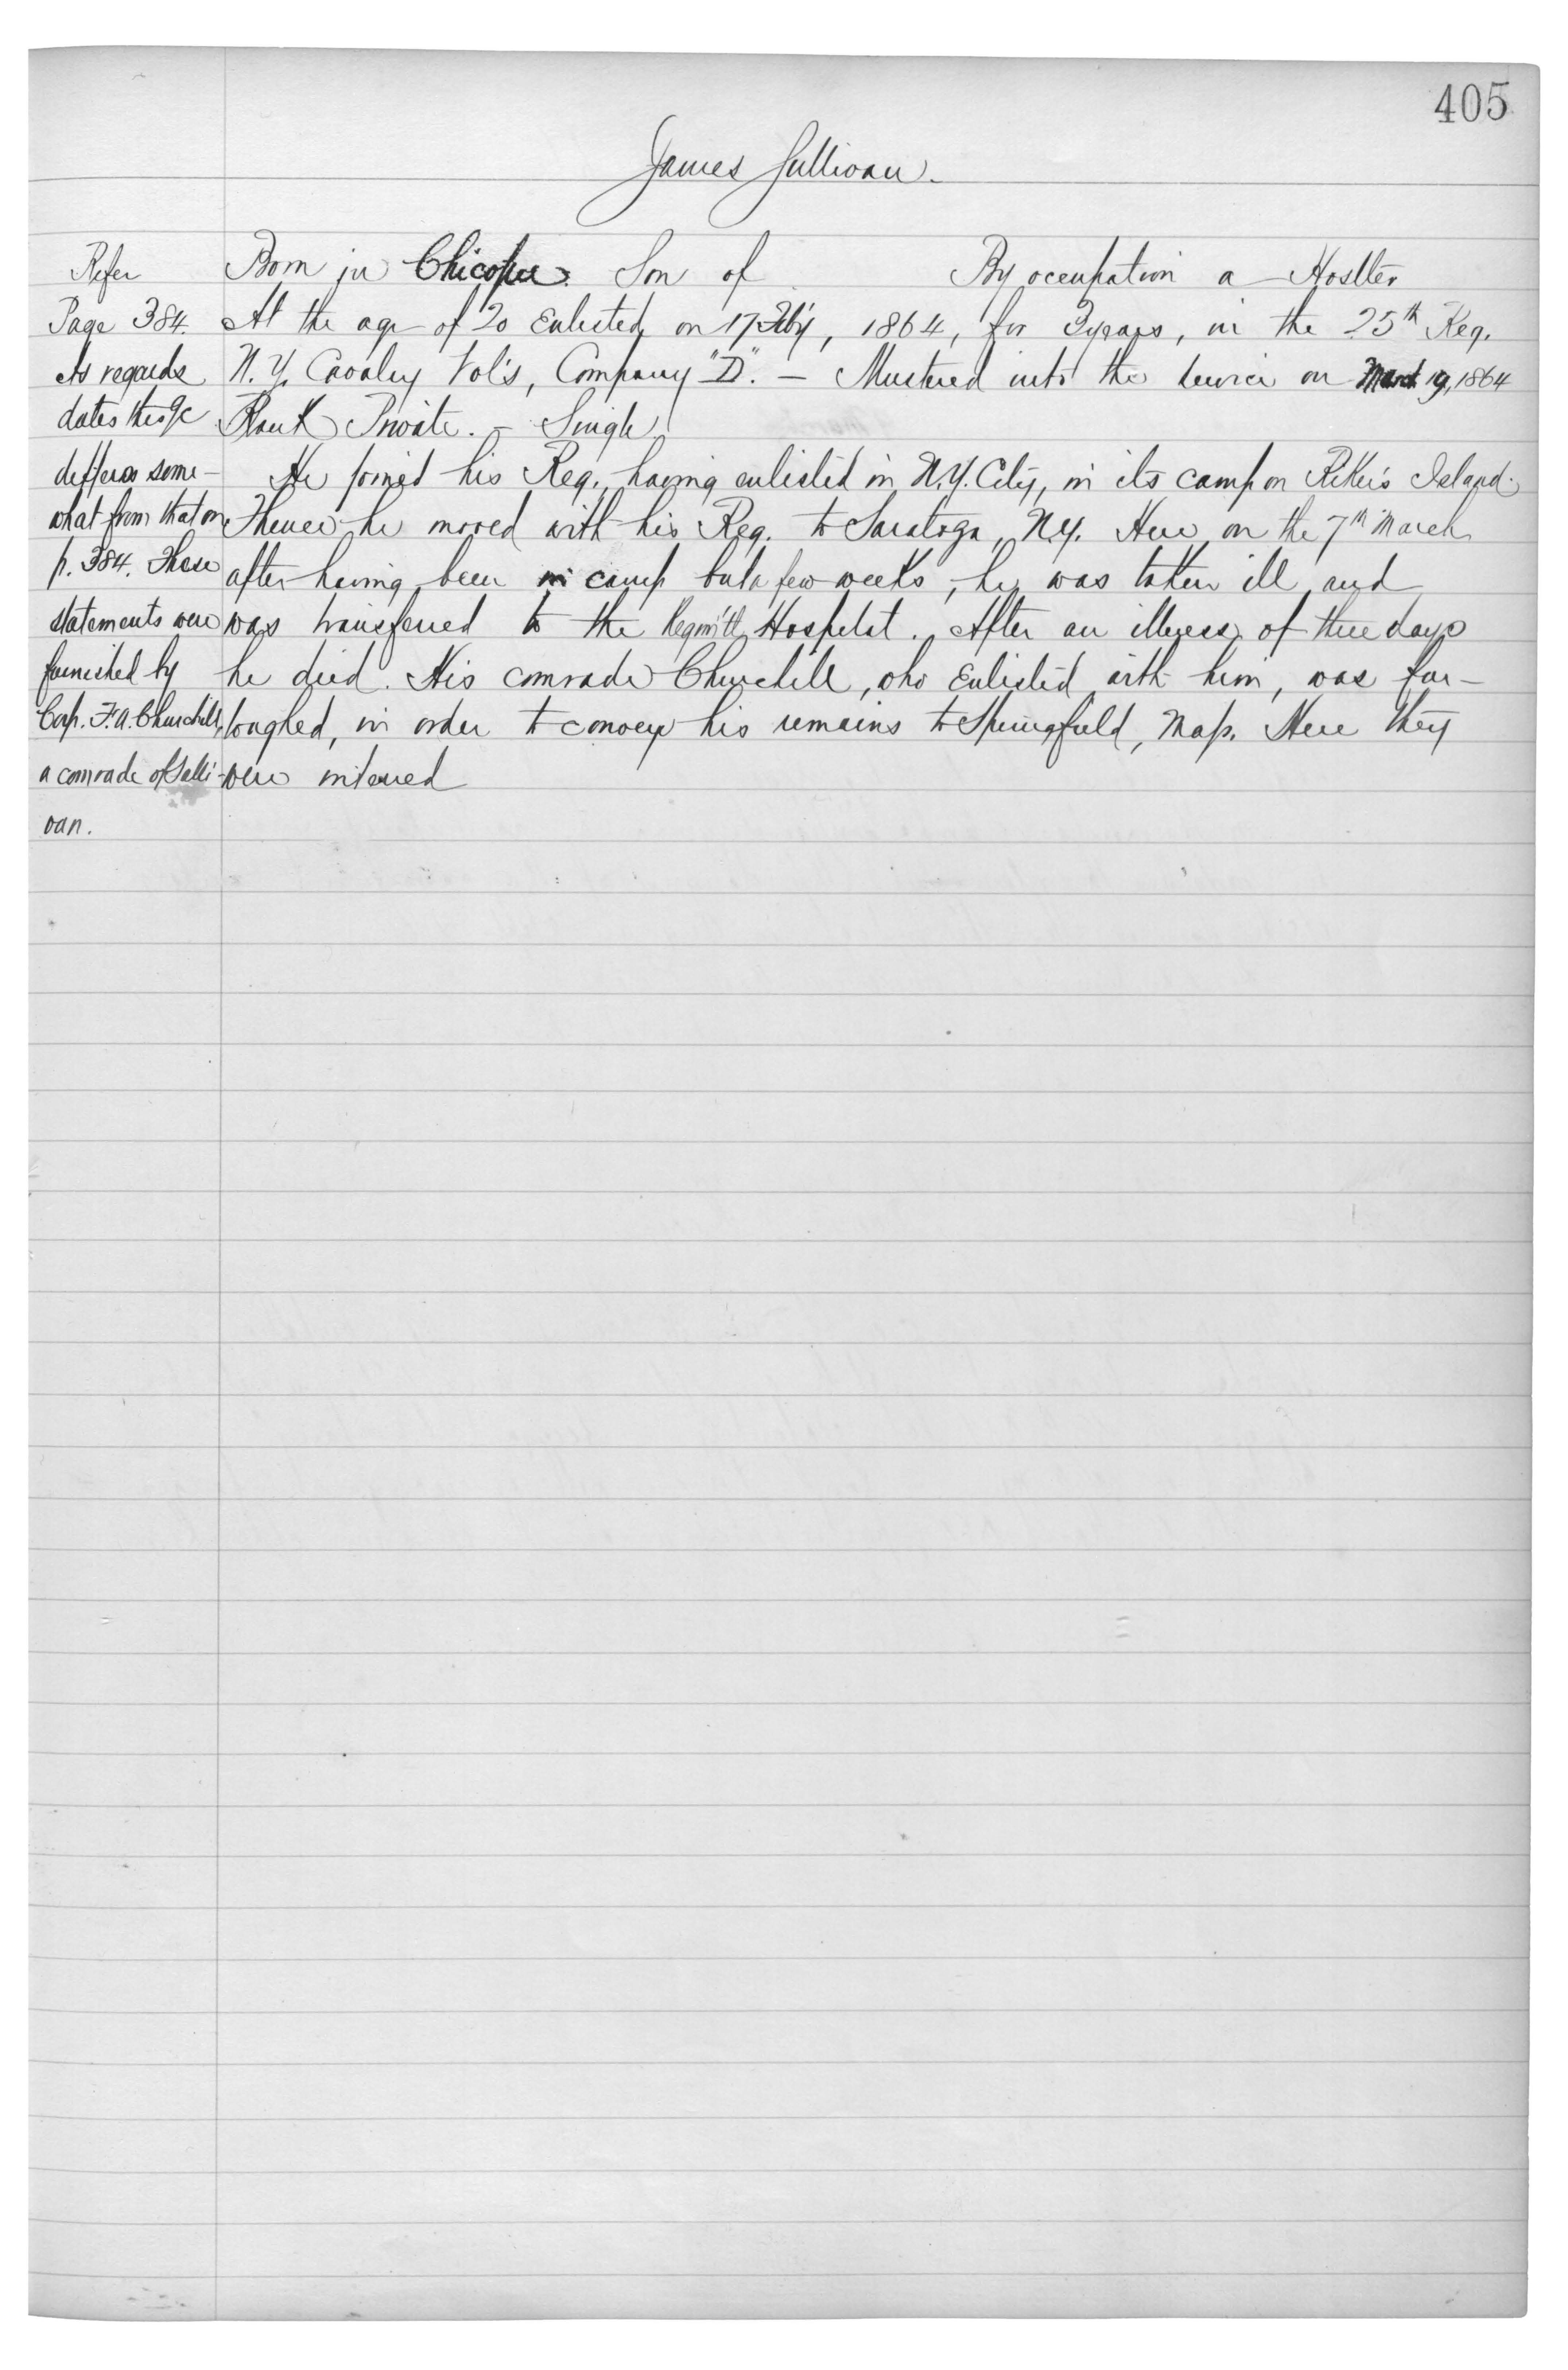 405
James Sullivan.
Born in Chicopee. Son of By occupation a Hostler
At the age of 20 Enlisted, on 17 Feb'y, 1864, for 3 years, in the 25th Reg.
N. Y. Cavalry Vol's, Company "D". – Mustered into the service on March 19, 1864
Rank Private. – Single
He joined his Reg., having enlisted in N.Y. City, in its camp on Riker's Island.
Thence he moved with his Reg. to Saratoga, N.Y. Here, on the 7th March
after having been in camp but a few weeks, he was taken ill, and
was transferred to the Regim'tl Hospital. After an illness of three days
he died. His comrade Churchill, who Enlisted with him, was fur-
loughed, in order to convey his remains to Springfield, Mass. Here they
were interred
Refer
Page 384.
As regards
dates this
differs some-
what from that on
p. 384. These
statements were
furnished by
Corp. F. A. Churchill,
a comrade of Sulli-
van.